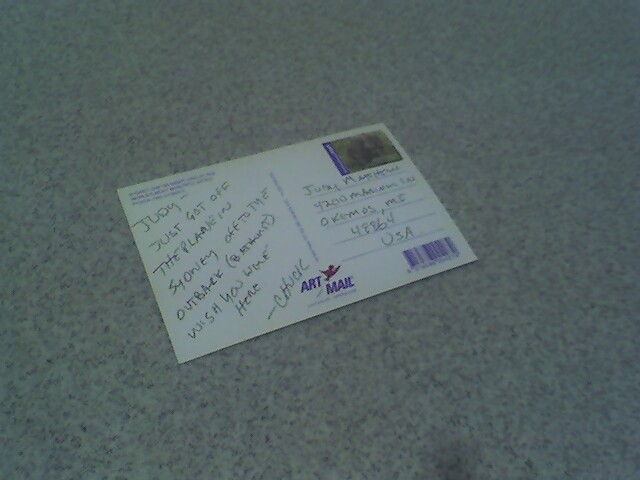 JUDY
JUST GOT OFF
THE PLANE IN
SYDNEY OFF TO THE
OUTBACK (BATHURST)
WISH YOU WERE
HERE
-CHUCK
JUDY
4200
OKEMOS, MI
48864
USA
ART MAIL